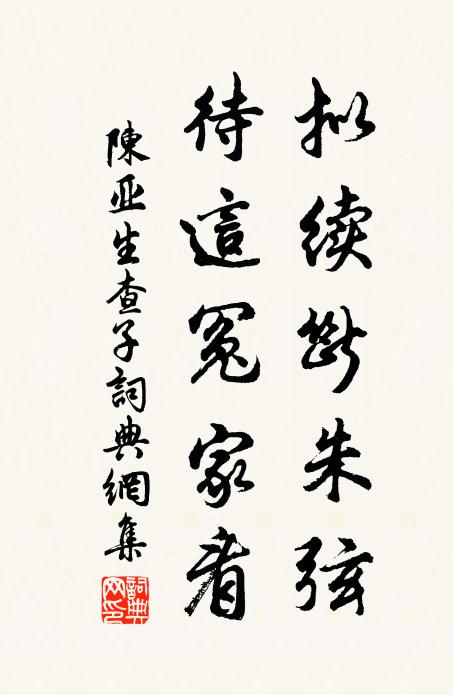 拟续断朱弦
待這冤家看
陳亚生查子詞典網集
詞典網印